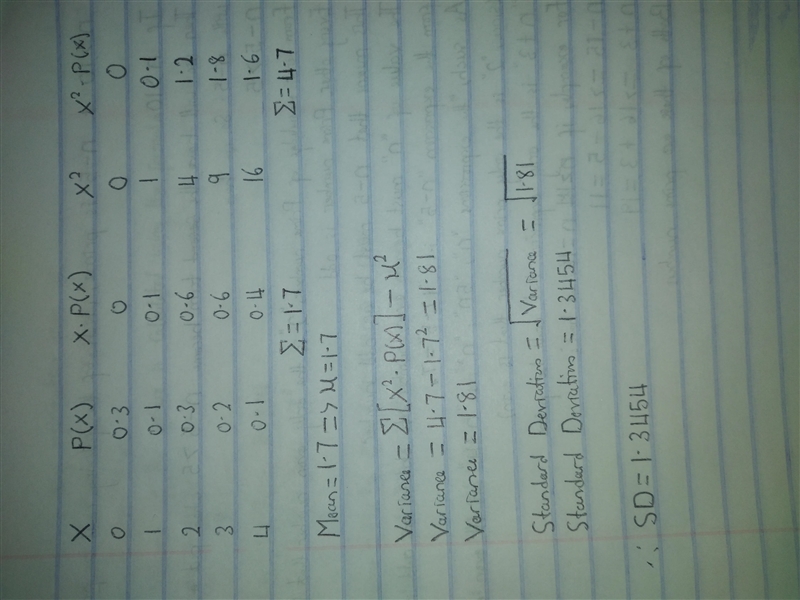 X P(x) X·P(x) X² X²·P(x)
0 0.3 0 0 0
1 0.1 0.1 1 0.1
2 0.3 0.6 4 1.2
3 0.2 0.6 9 1.8
4 0.1 0.4 16 1.6
Σ=1.7 Σ=4.7
Mean=1.7=>μ=1.7
Variance=Σ[X²·P(x)]−μ²
Variance=4.7−1.7²=1.81
Variance=1.81
Standard Deviation=√Variance=√1.81
Standard Deviation=1.3454
∴ SD=1.3454